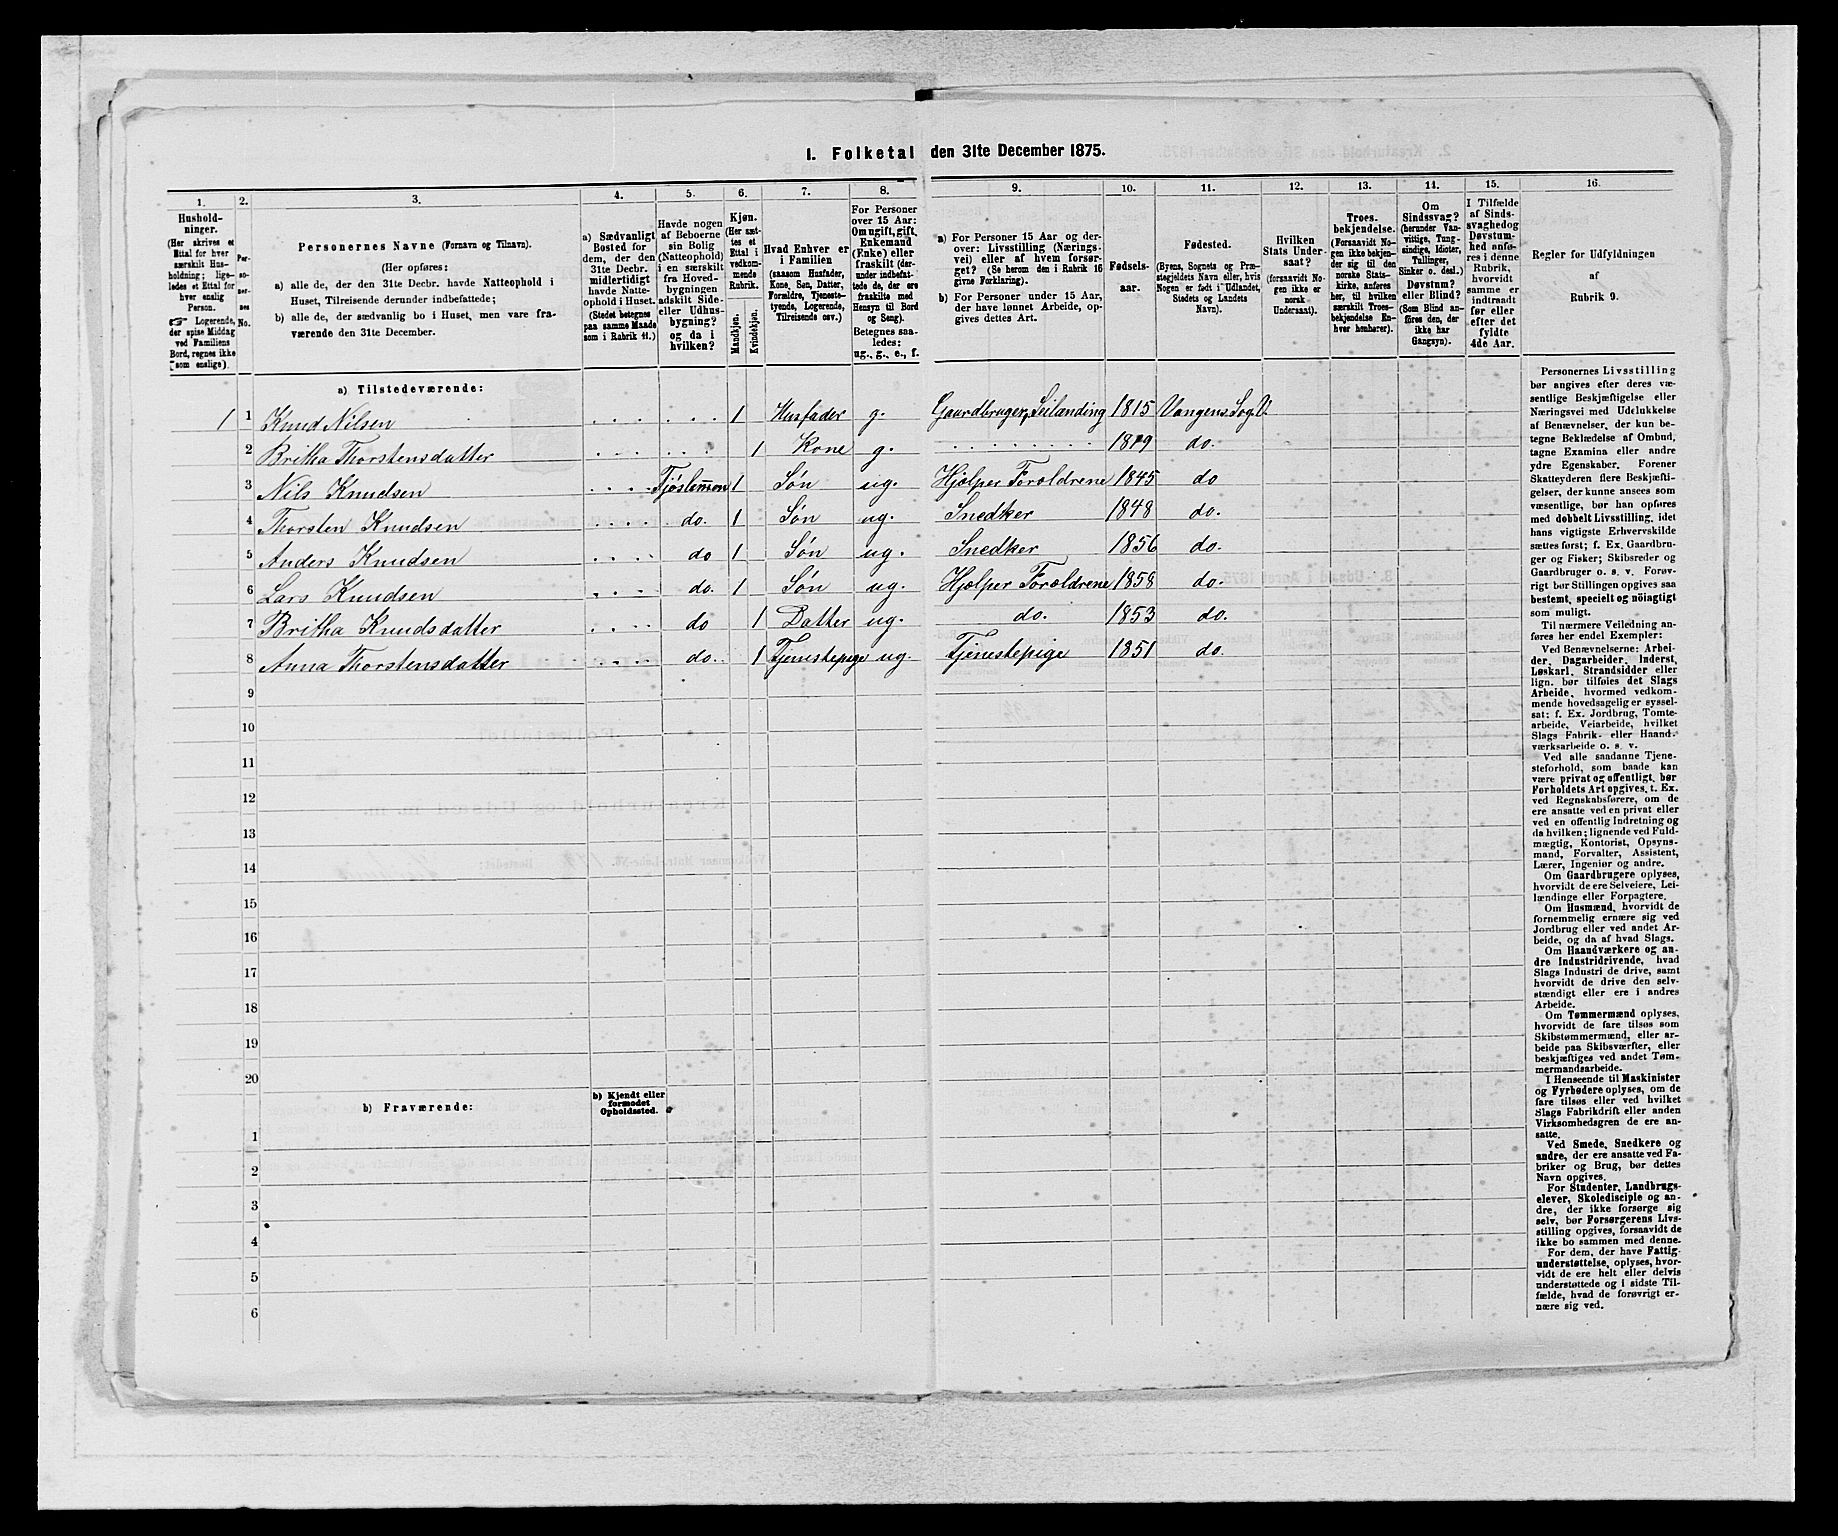 1. Folketal den 31te December 1875.
1. 2. 3. 4. 5. 6. 7. 8. 9. 10. 11. 12. 13. 14. 15. 16.
Hushold-
ninger.
(Her skrives et
Ettal for hver
særskilt Hus-
holdning; lige-
ledes et Ettal for
hver enslig
Person.
☞ Logerende,
der spise Middag
ved Familiens
Bord, regnes ikke
som enslige).
Per-
so-
ner-
nes
No.
Personernes Navne (Fornavn og Tilnavn).
(Her opføres:
a) alle de, der den 31te Decbr. havde Natteophold i
Huset, Tilreisende derunder indbefattede;
b) alle de, der sædvanlig bo i Huset, men vare fra-
værende den 31te December.
a) Sædvanligt
Bosted for
dem, der den
31te Decbr.
midlertidigt
havde Natte-
ophold i Huset.
(Stedet betegnes
paa samme Maade
som i Rubrik 11.)
Havde nogen
af Beboerne
sin Bolig
(Natteophold)
i en særskilt
fra Hoved-
bygningen
adskilt Side-
eller Udhus-
bygning?
og da i
hvilken?
Kjøn.
(Her sæt-
tes et
Ettal i
vedkom-
mende
Rubrik.
Mandkjøn.
Kvindekjøn.
Hvad Enhver er
i Familien
(saasom Husfader,
Kone, Søn, Datter,
Forældre, Tjeneste-
tyende, Logerende,
Tilreisende osv.)
For Personer
over 15 Aar:
Om ugift, gift,
Enkemand
(Enke) eller
fraskilt (der-
under indbefat-
tede de, der ere
fraskilte med
Hensyn til Bord
og Seng).
Betegnes saa-
ledes:
ug., g., e., f.
a) For Personer 15 Aar og der-
over: Livsstilling (Nærings-
vei) eller af hvem forsør-
get? (Se herom den i Rubrik 16
givne Forklaring).
b) For Personer under 15 Aar,
der have lønnet Arbeide, op-
gives dettes Art.
Fødsels-
aar.
Fødested.
(Byens, Sognets og Præ-
stegjeldets Navn eller, hvis
Nogen er født i Udlandet,
Stedets og Landets
Navn).
Hvilken
Stats Under-
saat?
(forsaavidt No-
gen ikke er
norsk
Undersaat).
Troes-
bekjendelse.
(Forsaavidt No-
gen ikke bekjen-
der sig til den
norske Stats-
kirke, anføres
her, til hvilken
særskilt Troes-
bekjendelse En-
hver henhører).
Om
Sindssvag?
(herunder Van-
vittige, Tung-
sindige, Idioter,
Tullinger,
Sinker o. desl.)
Døvstum?
eller Blind? (an-
føres den, der
ikke har
Gangsyn).
I Tilfælde
af Sinds-
svaghed og
Døvstum-
hed anfø-
res i denne
Rubrik,
hvorvidt
samme er
indtraadt
før eller
efter det
fyldte
4de Aar.
Regler for Udfyldningen
af
Rubrik 9.
a) Tilstedeværende:
1 1 Knud Nilsen 1 Husfader g. Gaardbruger, Leilænding 1815 Vangens Sog. V
2 Britha Thorstensdatter 1 Kone g. 1819 do.
3 Nils Knudsen 1 Søn ug. Hjælper Forældrene 1845 do
4 Thorsten Knudsen do. 1 Søn ug. Snedker 1848 do.
5 Anders Knudsen do 1 Søn ug. Snedker 1856 do.
6 Lars Knudsen do. 1 Søn ug. Hjælper Forældrene 1858 do.
7 Britha Knudsdatter do 1 Datter ug. do. 1853 do.
8 Anna Thorstensdatter do. 1 Tjenestepige ug. Tjenestepige 1851 do.
9
10
11
12
13
14
15
16
17
18
19
20
b) Fraværende:
b) Kjendt eller
formodet
Opholdssted.
1
2
3
4
5
6
Personernes Livsstilling
bør angives efter deres væ-
sentlige Beskjæftigelse eller
Næringsvei med Udelukkelse
af Benævnelser, der kun be-
tegne Beklædelse af Ombud,
tagne Examina eller andre
ydre Egenskaber. Forener
Skatteyderen flere Beskjæfti-
gelser, der kunne ansees som
væsentlige, bør han opføres
med dobbelt Livsstilling, idet
hans vigtigste Erhvervskilde
sættes først; f. Ex. Gaardbru-
ger og Fisker; Skibsreder og
Gaardbruger o. s. v. Forøv-
rigt bør Stillingen opgives saa
bestemt, specielt og nöiagtigt
som muligt.
Til nærmere Veiledning an-
føres her endel Exempler:
Ved Benævnelserne: Arbei-
der, Dagarbeider, Inderst,
Løskarl, Strandsidder eller
lign. bør tilføies det Slags
Arbeide, hvormed vedkom-
mende hovedsagelig er syssel-
sat; f. Ex. Jordbrug, Tomte-
arbeide, Veiarbeide, hvilket
Slags Fabrik- eller Haand-
værksarbeide o. s. v.
Ved alle saadanne Tjene-
steforhold, som baade kan
være privat og offentligt, bør
Forholdets Art opgives, t. Ex.
ved Regnskabsførere, om de
ere ansatte ved en privat eller
ved en offentlig Indretning og
da hvilken; lignende ved Fuld-
mægtig, Kontorist, Opsyns-
mand, Forvalter, Assistent,
Lærer, Ingeniør og andre.
Om Gaardbrugere oplyses,
hvorvidt de ere Selveiere, Lei-
lændinge eller Forpagtere.
Om Husmænd, hvorvidt de
fornemmelig ernære sig ved
Jordbrug eller ved andet Ar-
beide, og da af hvad Slags.
Om Haandværkere og an-
dre Industridrivende, hvad
Slags Industri de drive, samt
hvorvidt de drive den selv-
stændigt eller ere i andres
Arbeide.
Om Tømmermænd oplyses,
hvorvidt de fare tilsøs som
Skibstømmermænd, eller ar-
beide paa Skibsværfter, eller
beskjæftiges ved andet Tøm-
mermandsarbeide.
I Henseende til Maskinister
og Fyrbødere oplyses, om de
fare tilsøs eller ved hvilket
Slags Fabrikdrift eller anden
Virksomhedsgren de ere an-
satte.
Ved Smede, Snedkere og
andre, der ere ansatte ved Fa-
briker og Brug, bør dettes
Navn opgives.
For Studenter, Landbrugs-
elever, Skoledisciple og an-
dre, der ikke forsørge sig
selv, bør Forsørgerens Livs-
stilling opgives, forsaavidt de
ikke bo sammen med denne.
For dem, der have Fattig-
understøttelse, oplyses, hvor-
vidt de ere helt eller delvis
understøttede og i sidste Til-
fælde, hvad de forøvrigt er-
nære sig ved.